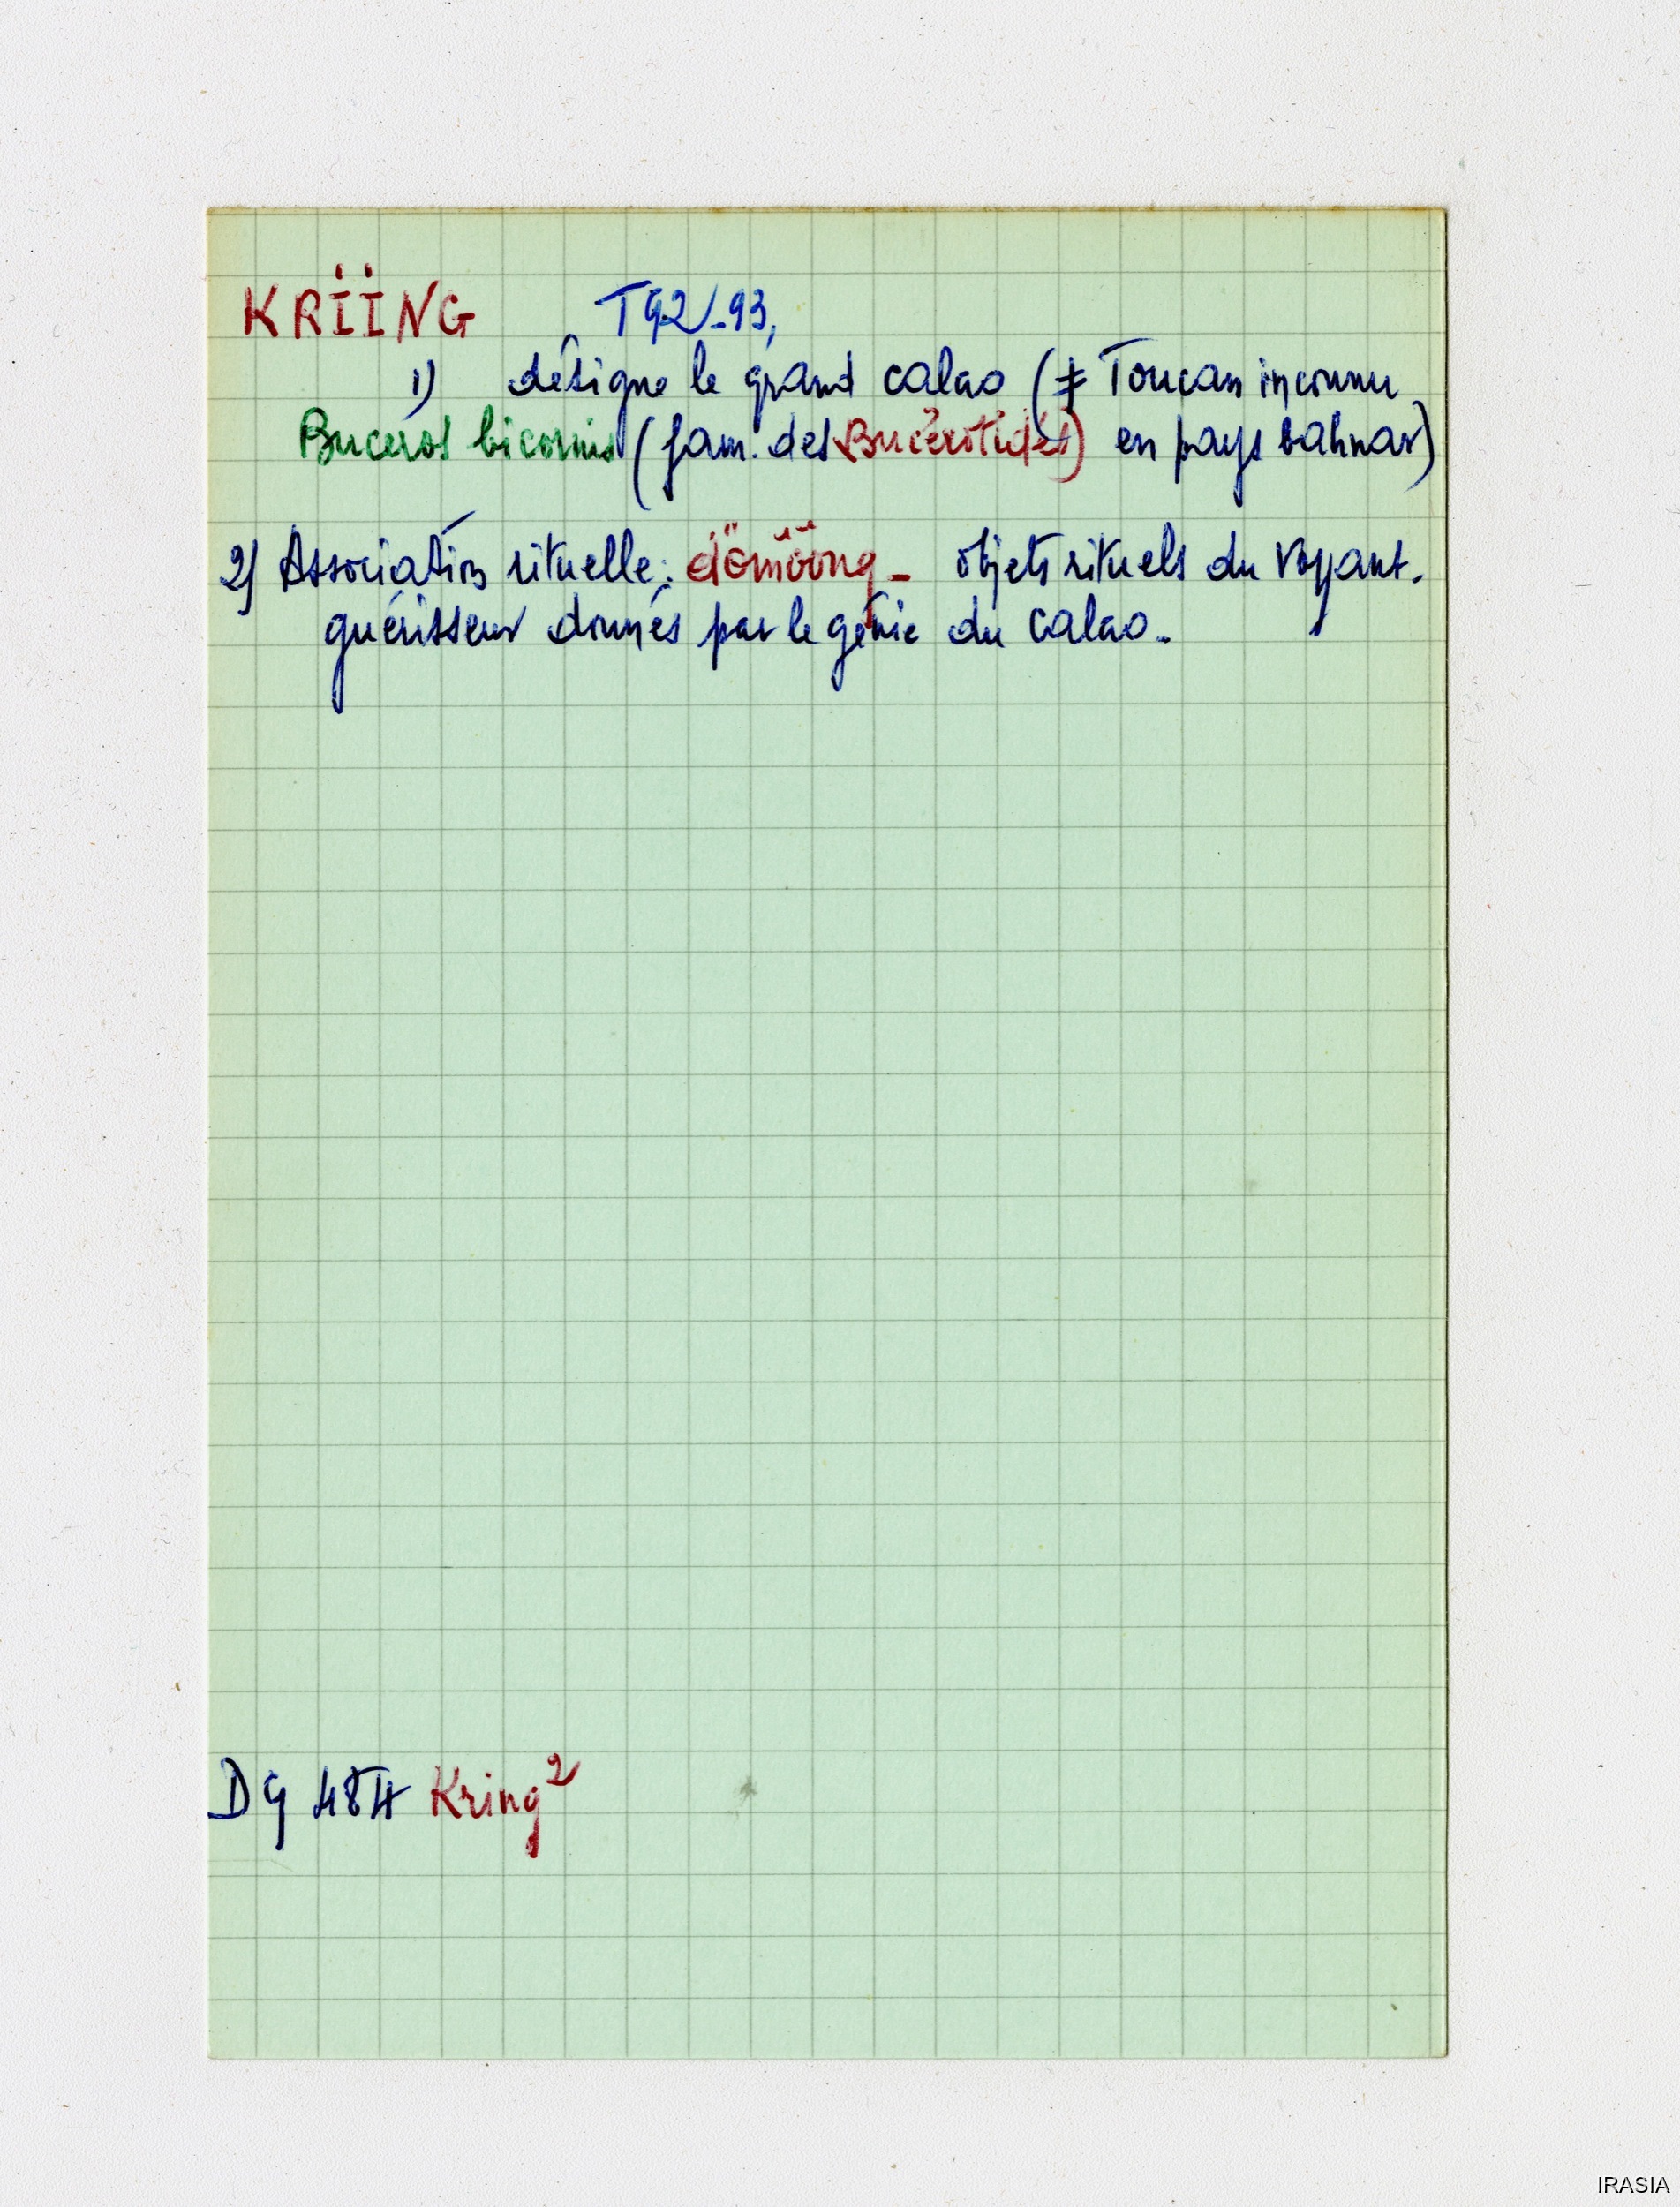 KRÏÏNG T92-93,
1) désigne le grand calao (≠ Toucan inconnu
Buceros bicornis (fam. des Bucérotidés) en pays bahnar)
2) Association rituelle: dömööng - objets rituels du voyant-
guérisseur donnés par le génie du calao.
DG 484 Kring²
IRASIA